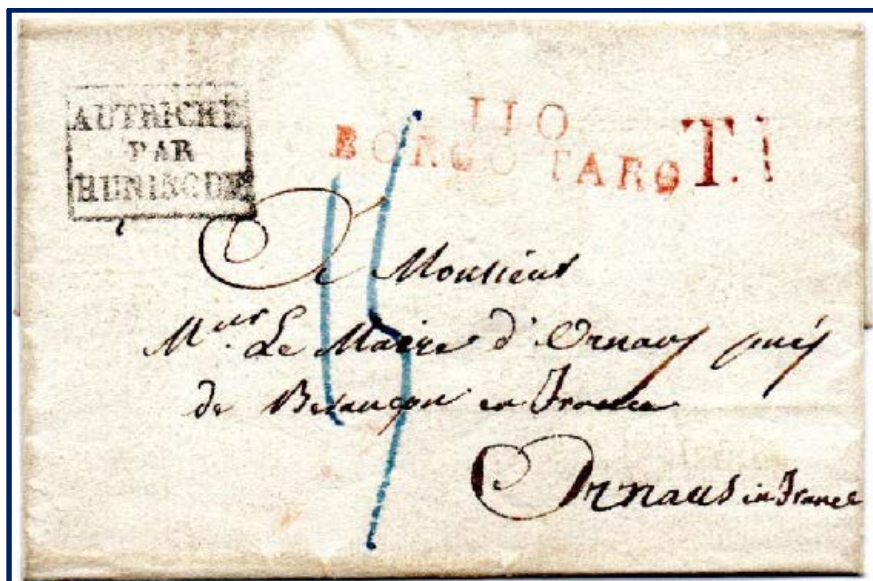 AUTRICHE
PAR
HUNINGUE
110
BORGO TARO
T.
15
A Monsieur
Mr Le Maire d'Ornans près
de Besançon en France
Ornans en France